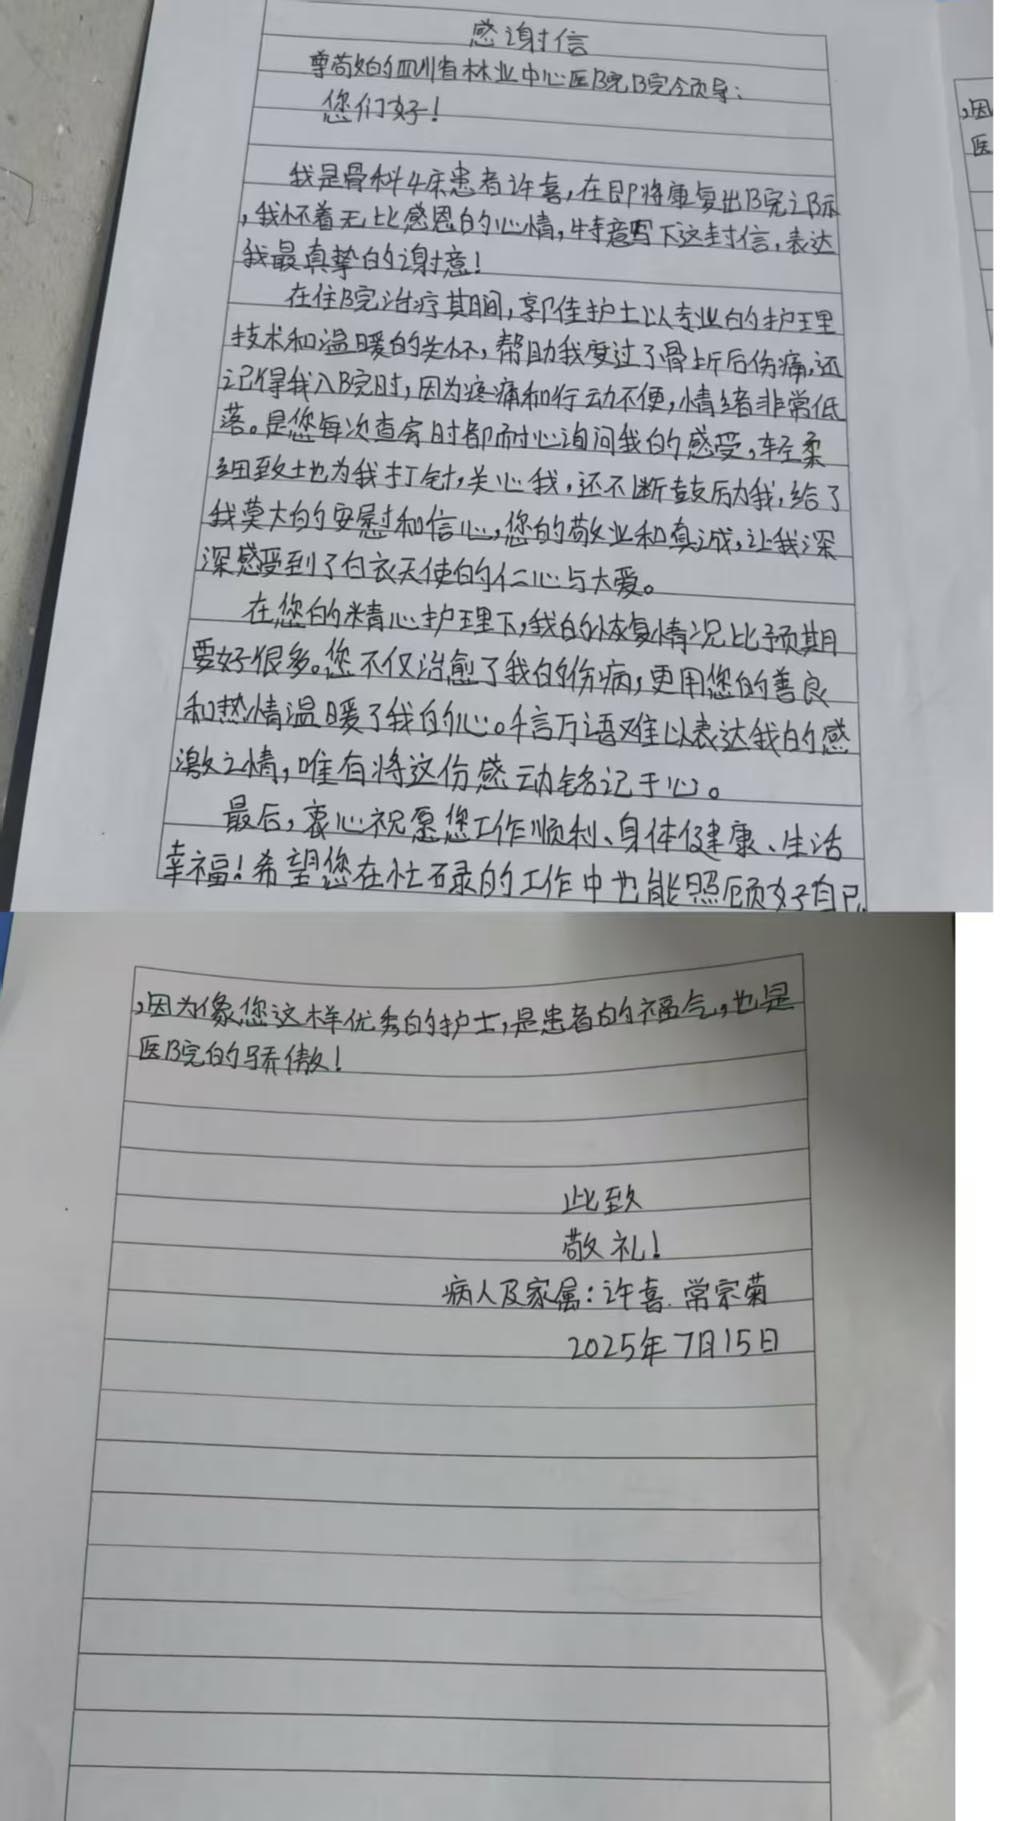 感谢信
尊敬的四川省林业中心医院院领导：
您们好！
我是骨科4床患者许喜，在即将康复出院之际
，我怀着无比感恩的心情，特意写下这封信，表达
我最真挚的谢意！
在住院治疗其期间，郭佳护士以专业的护理
技术和温暖的关怀，帮助我度过了骨折后伤痛，还
记得我入院时，因为疼痛和行动不便，情绪非常低
落。是您每次查房时都耐心询问我的感受，轻柔
细致地为我打针，关心我，还不断鼓励我，给了
我莫大的安慰和信心，您的敬业和真诚，让我深
深感受到了白衣天使的仁心与大爱。
在您的精心护理下，我的恢复情况比预期
要好很多。您不仅治愈了我的伤病，更用您的善良
和热情温暖了我的心。千言万语难以表达我的感
激之情，唯有将这份感动铭记于心。
最后，衷心祝愿您工作顺利、身体健康、生活
幸福！希望您在忙碌的工作中也能照顾好自己
，因为像您这样优秀的护士，是患者的福气，也是
医院的骄傲！
此致
敬礼！
病人及家属：许喜．常宗菊
2025年7月15日
，因
医